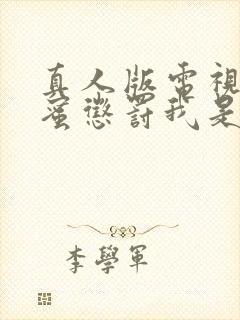 真人版電視
蜜懲罰我是
李學軍